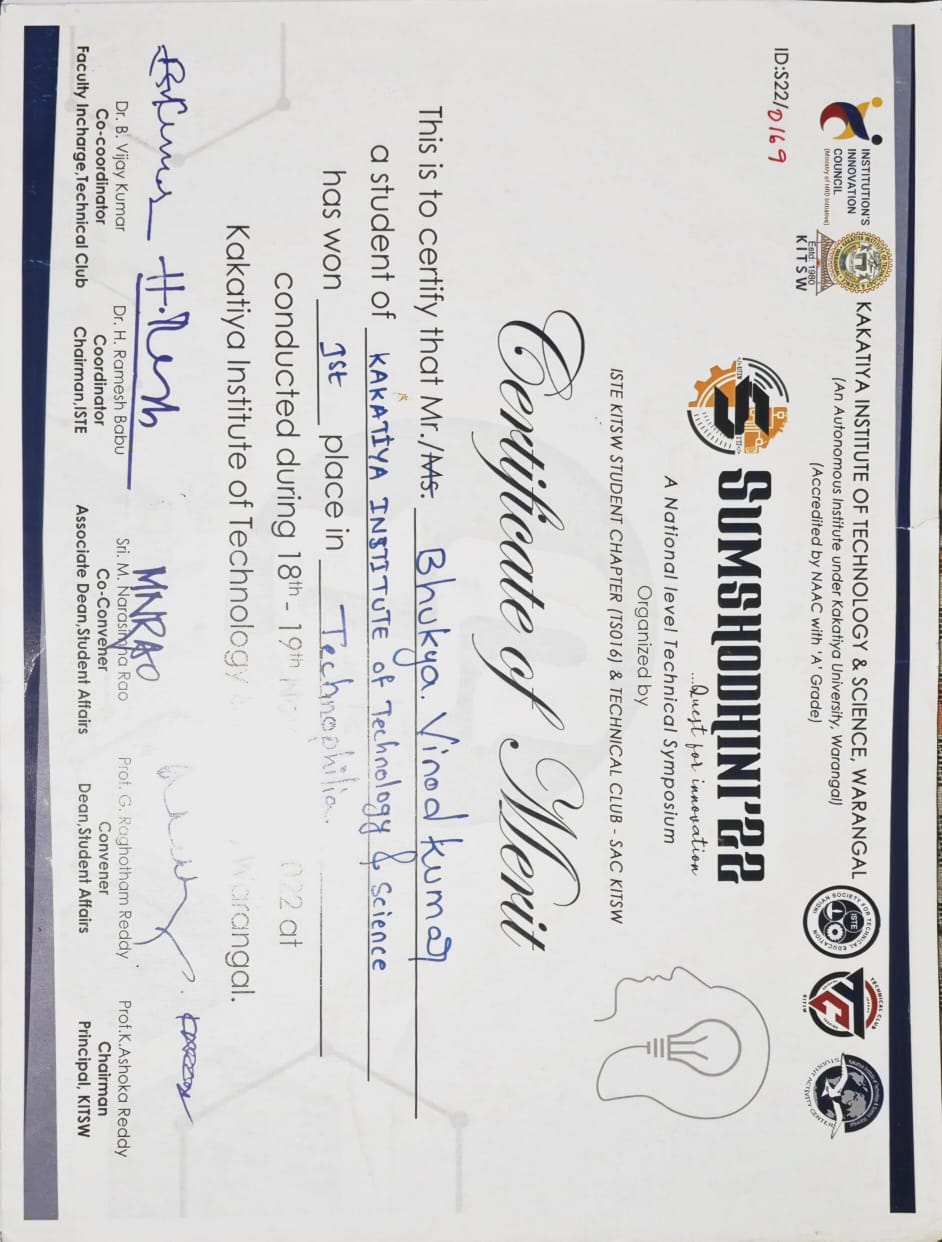 ID:S22/0169
INSTITUTION'S
INNOVATION
COUNCIL
(Ministry of HRD Initiative)
Estd: 1980
KITSW
KAKATIYA INSTITUTE OF TECHNOLOGY & SCIENCE, WARANGAL
(An Autonomous Institute under Kakatiya University, Warangal)
(Accredited by NAAC with 'A' Grade)
INDIAN SOCIETY FOR TECHNICAL EDUCATION
ISTE
TECHNICAL CLUB
KITSW
STUDENT ACTIVITY CENTER
SUMSHODHINI'22
...Quest for innovation
A National level Technical Symposium
Organized by
ISTE KITSW STUDENT CHAPTER (TS016) & TECHNICAL CLUB - SAC KITSW
Certificate of Merit
This is to certify that Mr./Ms. Bhukya. Vinod kumar
a student of KAKATIYA INSTITUTE of Technology & Science
has won 1st place in Technophilia.
conducted during 18th - 19th No 022 at
Kakatiya Institute of Technology & , Warangal.
H. Resh
MNRAO
Dr. B. Vijay Kumar
Co-coordinator
Faculty Incharge,Technical Club
Dr. H. Ramesh Babu
Coordinator
Chairman,ISTE
Sri. M. Narasimha Rao
Co-Convener
Associate Dean,Student Affairs
Prof. G. Raghotham Reddy
Convener
Dean,Student Affairs
Prof.K.Ashoka Reddy
Chairman
Principal, KITSW